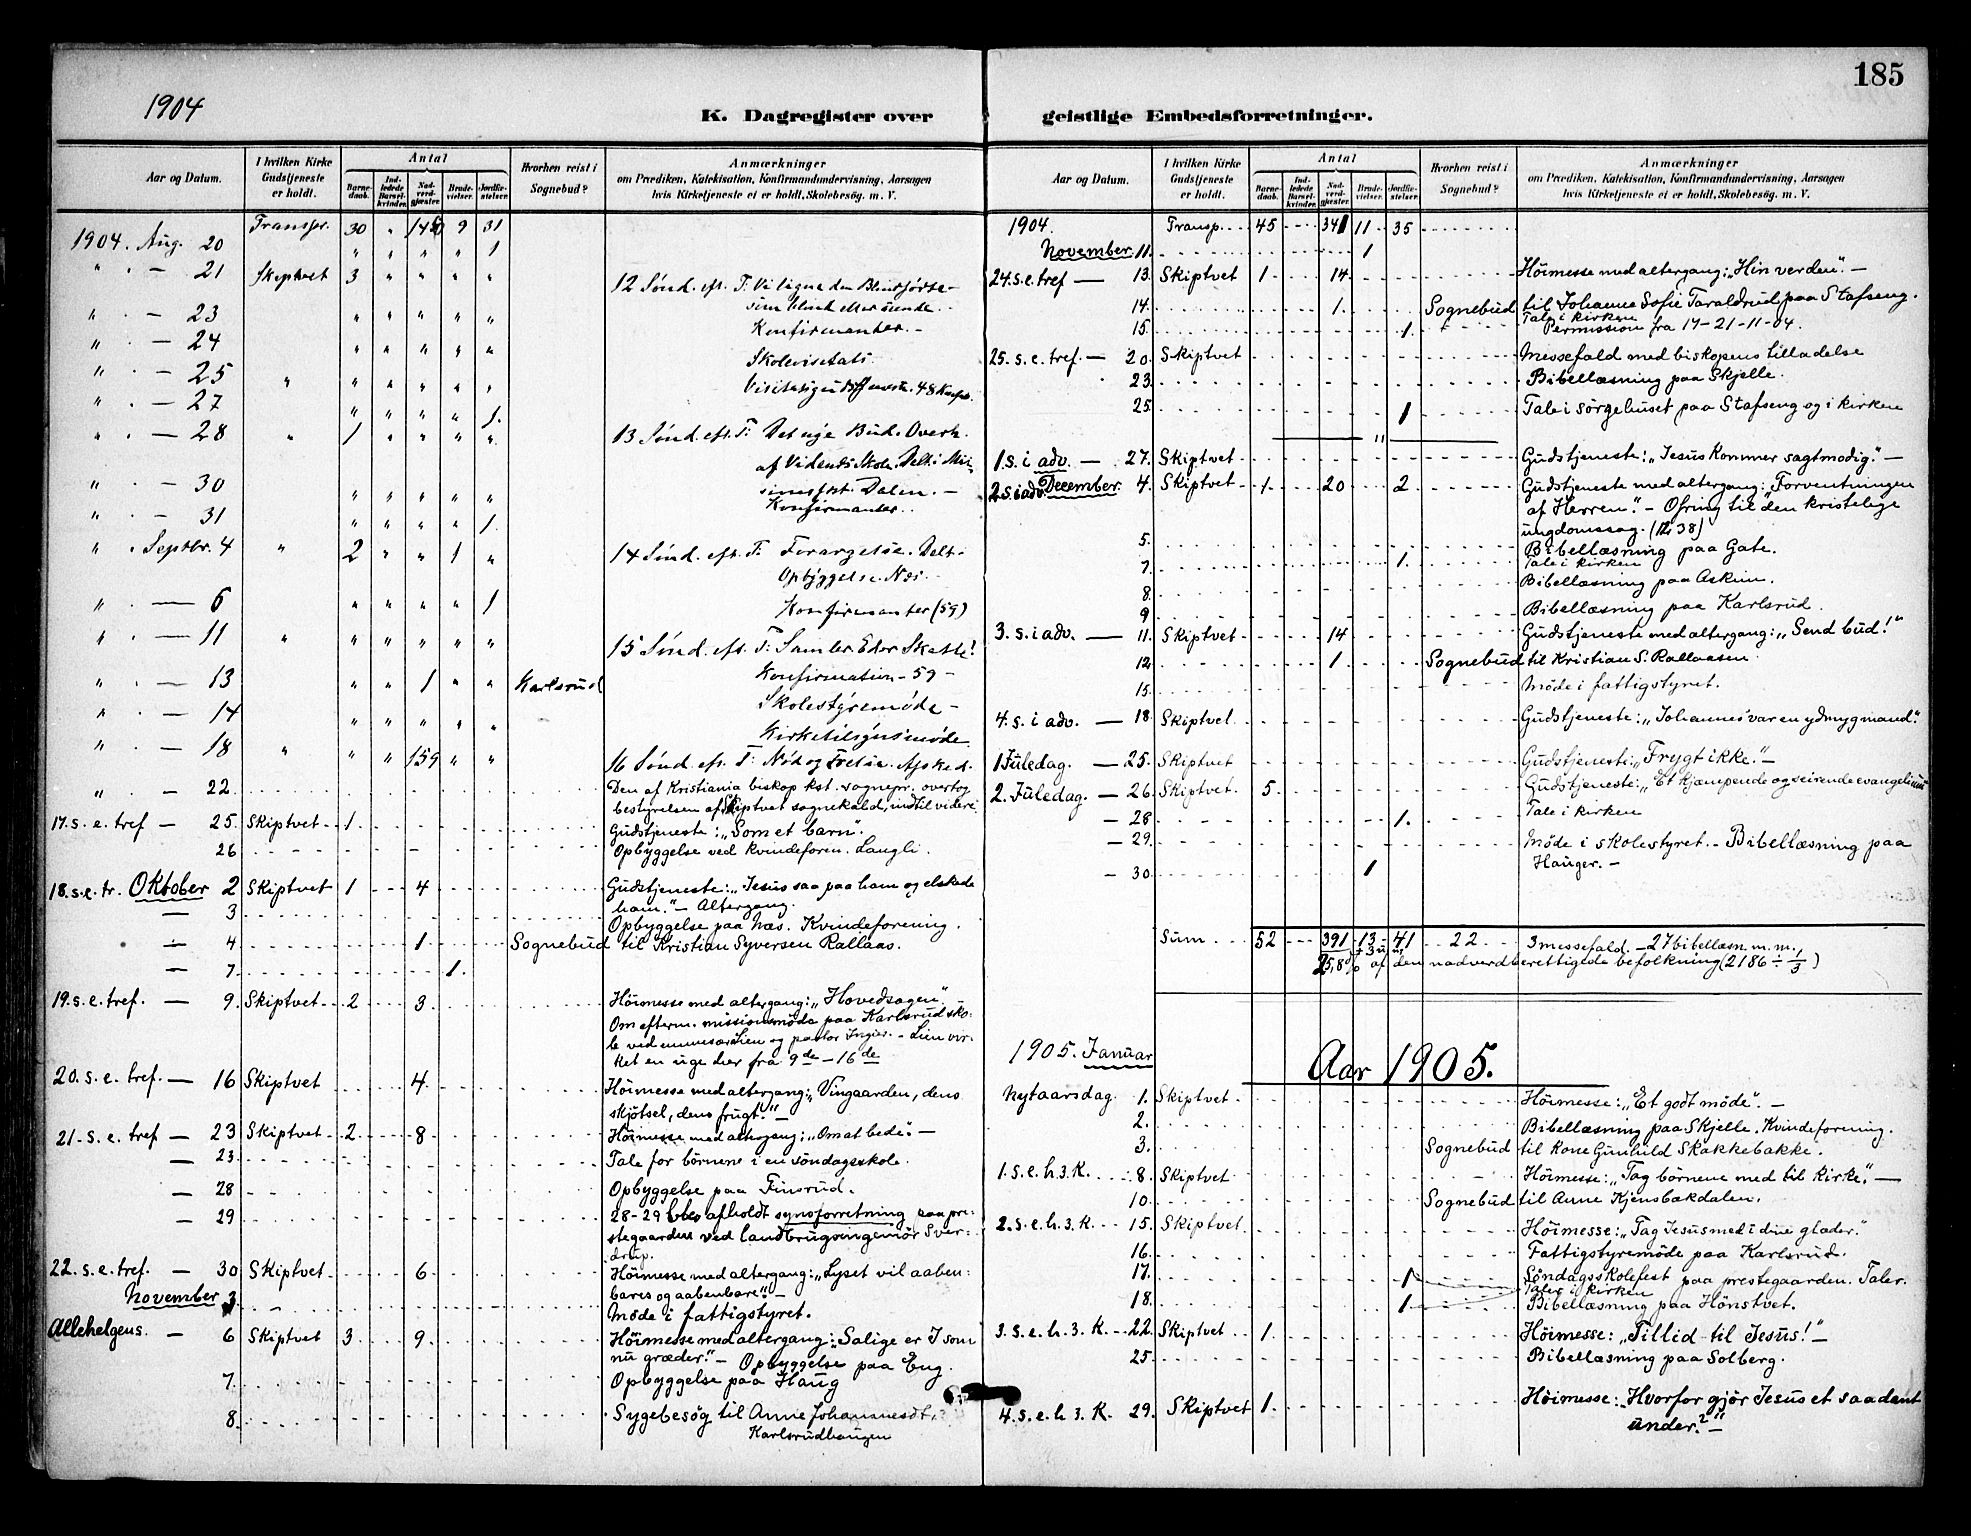 185
1904
K. Dagregister over geistlige Embedsforretninger.
Aar og Datum. I hvilken Kirke Gudstjeneste er holdt. Antal Barnedaab. Indledede Barselkvinder. Nadverdgjester. Brudevielser. Jordfæstelser. Hvorhen reist i Sognebud? Anmærkninger om Prædiken, Katekisation, Konfirmandundervisning, Aarsagen hvis Kirketjeneste ei er holdt, Skolebesøg. m. V.
Transpr. 30 " 9 31
1904. Aug. 20 " " " " 1
" - 21 Skiptvet 3 " " " " 12 Sønd. eft. T:
" - 23 " " " " " Konfirmanter. -
" - 24 " " " " " Skolevisitats
" - 25 " " " " " "
" - 27 " " " " 1.
" - 28 " 1 " " " " 13 Sønd. eft. T:
" - 30 " " " " " Konfirmanter..
" - 31 " " " " 1.
" Septbr. 4 " 2 " " 1 " 14 Sønd. eft. T: Forargelse. Delt.
Opbyggelse. Næs. -
" - 6 " " " " 1 Konfirmanter (59)
" - 11 " " " " " " 15 Sønd. eft. T: Samler Eder Skatte!
Konfirmation - 59 -
" - 13 " " 1 " " Karlsrud Skolestyremøde -
" - 14 " " " " " Kirketilsynsmøde.
" - 18 " " " 159 " " 16 Sønd. eft. T: Nød og Frelse. Afsked.
" - 22. Den af Kristiania biskop kst. sognepr. overtog
bestyrelsen af Skiptvet sognekald, indtil videre
17. s. e. tref - 25. Skiptvet 1 Gudstjeneste: „Som et barn”.
26 Opbyggelse ved kvindeforen. Langli.
18. s. e. tr. Oktober 2 Skiptvet 1 4 Gudstjeneste: „Jesus saa paa ham og elskede
ham.” - Altergang.
- 3 Opbyggelse paa Næs. Kvindeforening.
- 4 1 Sognebud til Kristian Syversen Rallaas.
- 7 1.
19. s. e. tref. - 9. Skiptvet 2 3 Höimesse med altergang: „Hovedsagen”.
Om efterm. missionsmöde paa Karlsrud sko-
le ved emissær Lien og pastor Ingier. - Lien vir-
ket en uge her fra 9de - 16de
20. s. e. tref. - 16 Skiptvet 4. Höimesse med altergang: „Vingaarden, dens
skjötsel, dens frugt.” -
21. s. e. tref - 23 Skiptvet 2 8 Höimesse med altergang: „Om at bede”. -
- 23. Tale for börnene i en söndagsskole.
- 28 Opbyggelse paa Finsrud.
- 29 28-29 blev afholdt synsforretning paa pre-
stegaarden ved landbrugsingeniör Sver-
drup.
22. s. e. tref. - 30 Skiptvet 6. Höimesse med altergang: „Lyset vil aaben-
bares og aabenbare”. -
November 3. Möde i fattigstyret.
Allehelgens. - 6 Skiptvet 3 9. Höimesse med altergang: „Salige er I som
nu græder.” - Opbyggelse paa Eng.
7. Opbyggelse paa Haug
8. Sygebesög til Anne Johannesdt.
Karlsrudhaugen
Aar og Datum. I hvilken Kirke Gudstjeneste er holdt. Antal Barnedaab. Indledede Barselkvinder. Nadverdgjester. Brudevielser. Jordfæstelser. Hvorhen reist i Sognebud? Anmærkninger om Prædiken, Katekisation, Konfirmandundervisning, Aarsagen hvis Kirketjeneste ei er holdt, Skolebesøg. m. V.
1904. Transp. 45 341 11 35
November 11. 1
24. s. e. tref - 13. Skiptvet 1 14. Höimesse med altergang: „Hin verden”. -
14. 1. Sognebud til Johanne Sofie Taraldrud paa Stafseng.
15. 1. Tale i kirken
Permission fra 17-21-11-04.
25. s. e. tref. - 20. Skiptvet Messefald med biskopens tilladelse
23. Bibellæsning paa Skjelle.
25. 1 Tale i sörgehuset paa Stafseng og i kirken
1 s. i adv. - 27. Skiptvet Gudstjeneste: „Jesus kommer sagtmodig.” -
2. s. i adv. December. 4. Skiptvet 1 20 2 Gudstjeneste med altergang: Forventningen
af Herren”. - Ofring til den kristelige
ungdomssag.
5. Bibellæsning paa Gate.
7. 1. Tale i kirken
8. Bibellæsning paa Askim.
9 Bibellæsning paa Karlsrud.
3. s. i adv. - 11. Skiptvet 14 Gudstjeneste med altergang: „Send bud!”
12. 1 Sognebud til Kristian S. Rallaasen
15. Möde i fattigstyret.
4. s. i adv. - 18. Skiptvet Gudstjeneste: „Johannes var en ydmyg mand.”
1 Juledag. - 25. Skiptvet Gudstjeneste: „Frygt ikke”. -
2. Juledag - 26. Skiptvet. 5 Gudstjeneste: „Et kjæmpende og seirende evangelium”
- 28 1. Tale i kirken
- 29. Möde i skolestyret. - Bibellæsning paa
Hauger. -
- 30 1
Sum 52 391 13 41 22 3 messefald. - 27 bibellæsn. m. m.
25,8% af den nadverdberettigede befolkning (2186 ÷ 1/3)
1905. Januar Aar 1905.
Nytaarsdag. 1. Skiptvet Höimesse: „Et godt möde”. -
2. Bibellæsning paa Skjelle. Kvindeforening.
3. Sognebud til Kone Gunhild Skakkebakke.
1. s. e. h. 3. K. 8. Skiptvet Höimesse: „Tag börnene med til kirke”. -
10. Sognebud til Anne Kjensbakdalen.
2. s. e. h. 3. K. 15. Skiptvet Höimesse: „Tag Jesus med i dine glæder.”
16. Fattigstyremöde paa Karlsrud.
17. 1 Söndagsskolefest paa prestegaarden. Taler.
Taler i kirken
18. 1 Bibellæsning paa Hönstvet.
3. s. e. h. 3. K. 22. Skiptvet 1 Höimesse: „Tillid til Jesus!” -
25. Bibellæsning paa Solberg.
4. s. e. h. 3. K. 29. Skiptvet 1 Höimesse: „Hvorfor gjör Jesus et saadant
under?” -